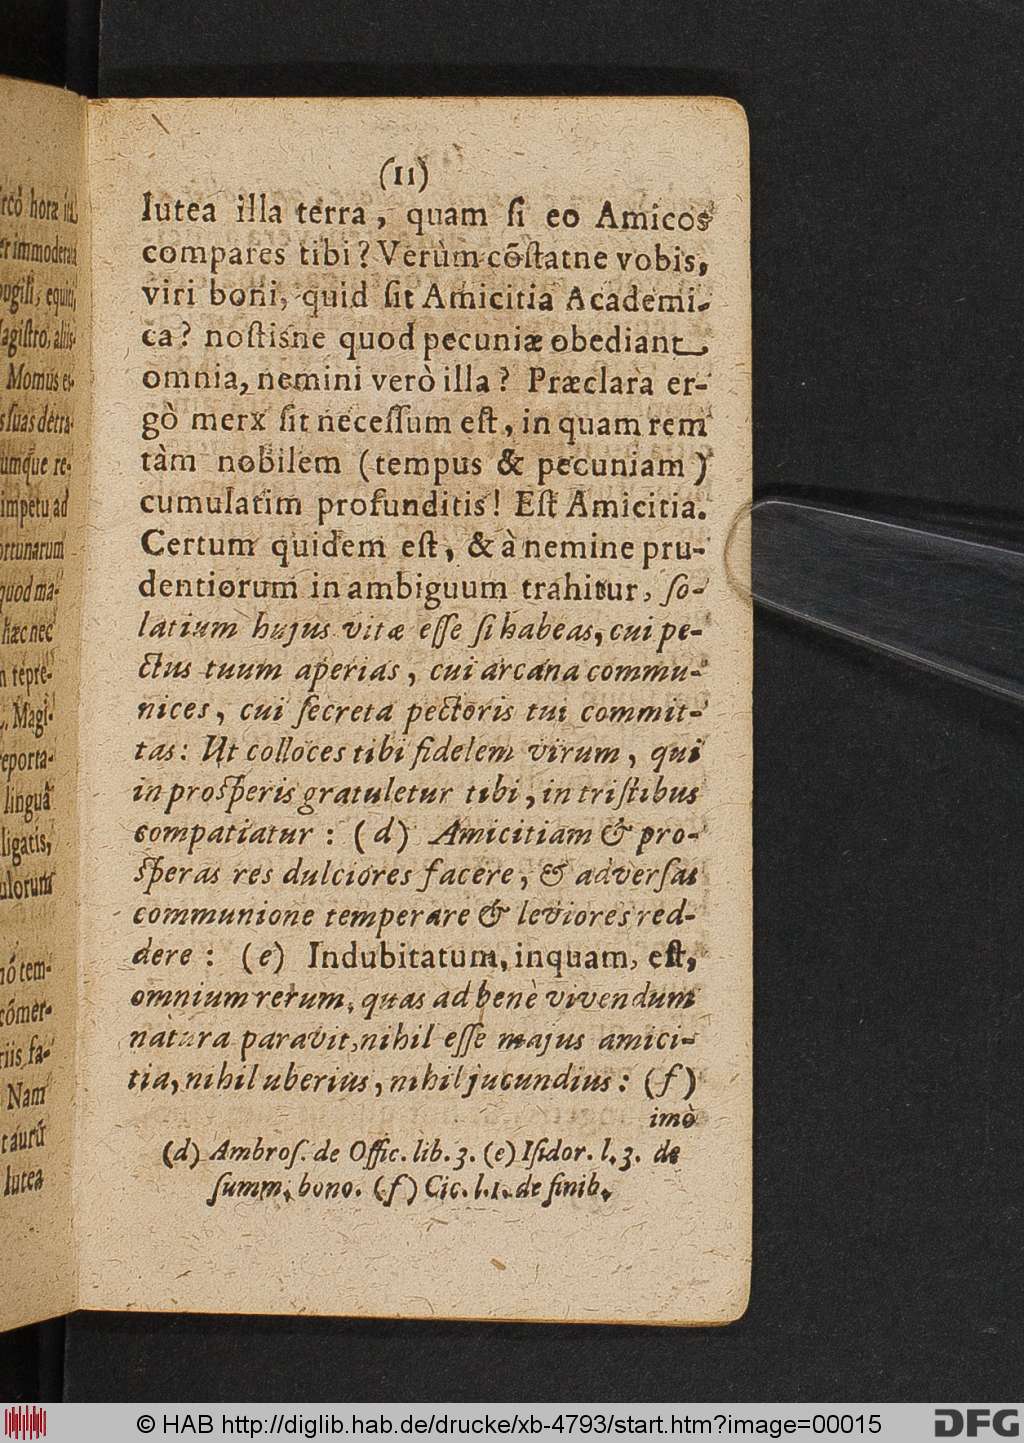 (11)
lutea illa terra, quam ſi eo Amicos
compares tibi? Verùm cõſtatne vobis,
viri boni, quid ſit Amicitia Academi-
ca? noſtisne quod pecuniæ obediant
omnia, nemini verò illa? Præclara er-
gò merx ſit neceſſum eſt, in quam rem
tàm nobilem (tempus & pecuniam)
cumulatim profunditis! Eſt Amicitia.
Certum quidem eſt, & à nemine pru-
dentiorum in ambiguum trahitur, ſo-
latium hujus vitæ eſſe ſi habeas, cui pe-
ctus tuum aperias, cui arcana commu-
nices, cui ſecreta pectoris tui commit-
tas: Ut colloces tibi fidelem virum, qui
in proſperis gratuletur tibi, in triſtibus
compatiatur: (d) Amicitiam & pro-
ſperas res dulciores facere, & adverſas
communione temperare & leviores red-
dere: (e) Indubitatum, inquam, eſt,
omnium rerum, quas ad benè vivendum
natura paravit, nihil eſſe majus amici-
tia, nihil uberius, nihil jucundius: (f)
imò
(d) Ambroſ. de Offic. lib. 3. (e) Iſidor. l. 3. de
ſumm. bono. (f) Cic. l. 1. de finib.
hora
immodera
pugili, equiti,
Magiſtro, aliis-
Momus
ſuas detra-
umque re-
impetu ad
fortunarum
quod ma-
hæc nec
repre-
Magi-
reporta-
linguâ
ligatis,
tem-
cõmer-
Nam
lutea
© HAB http://diglib.hab.de/drucke/xb-4793/start.htm?image=00015
DFG